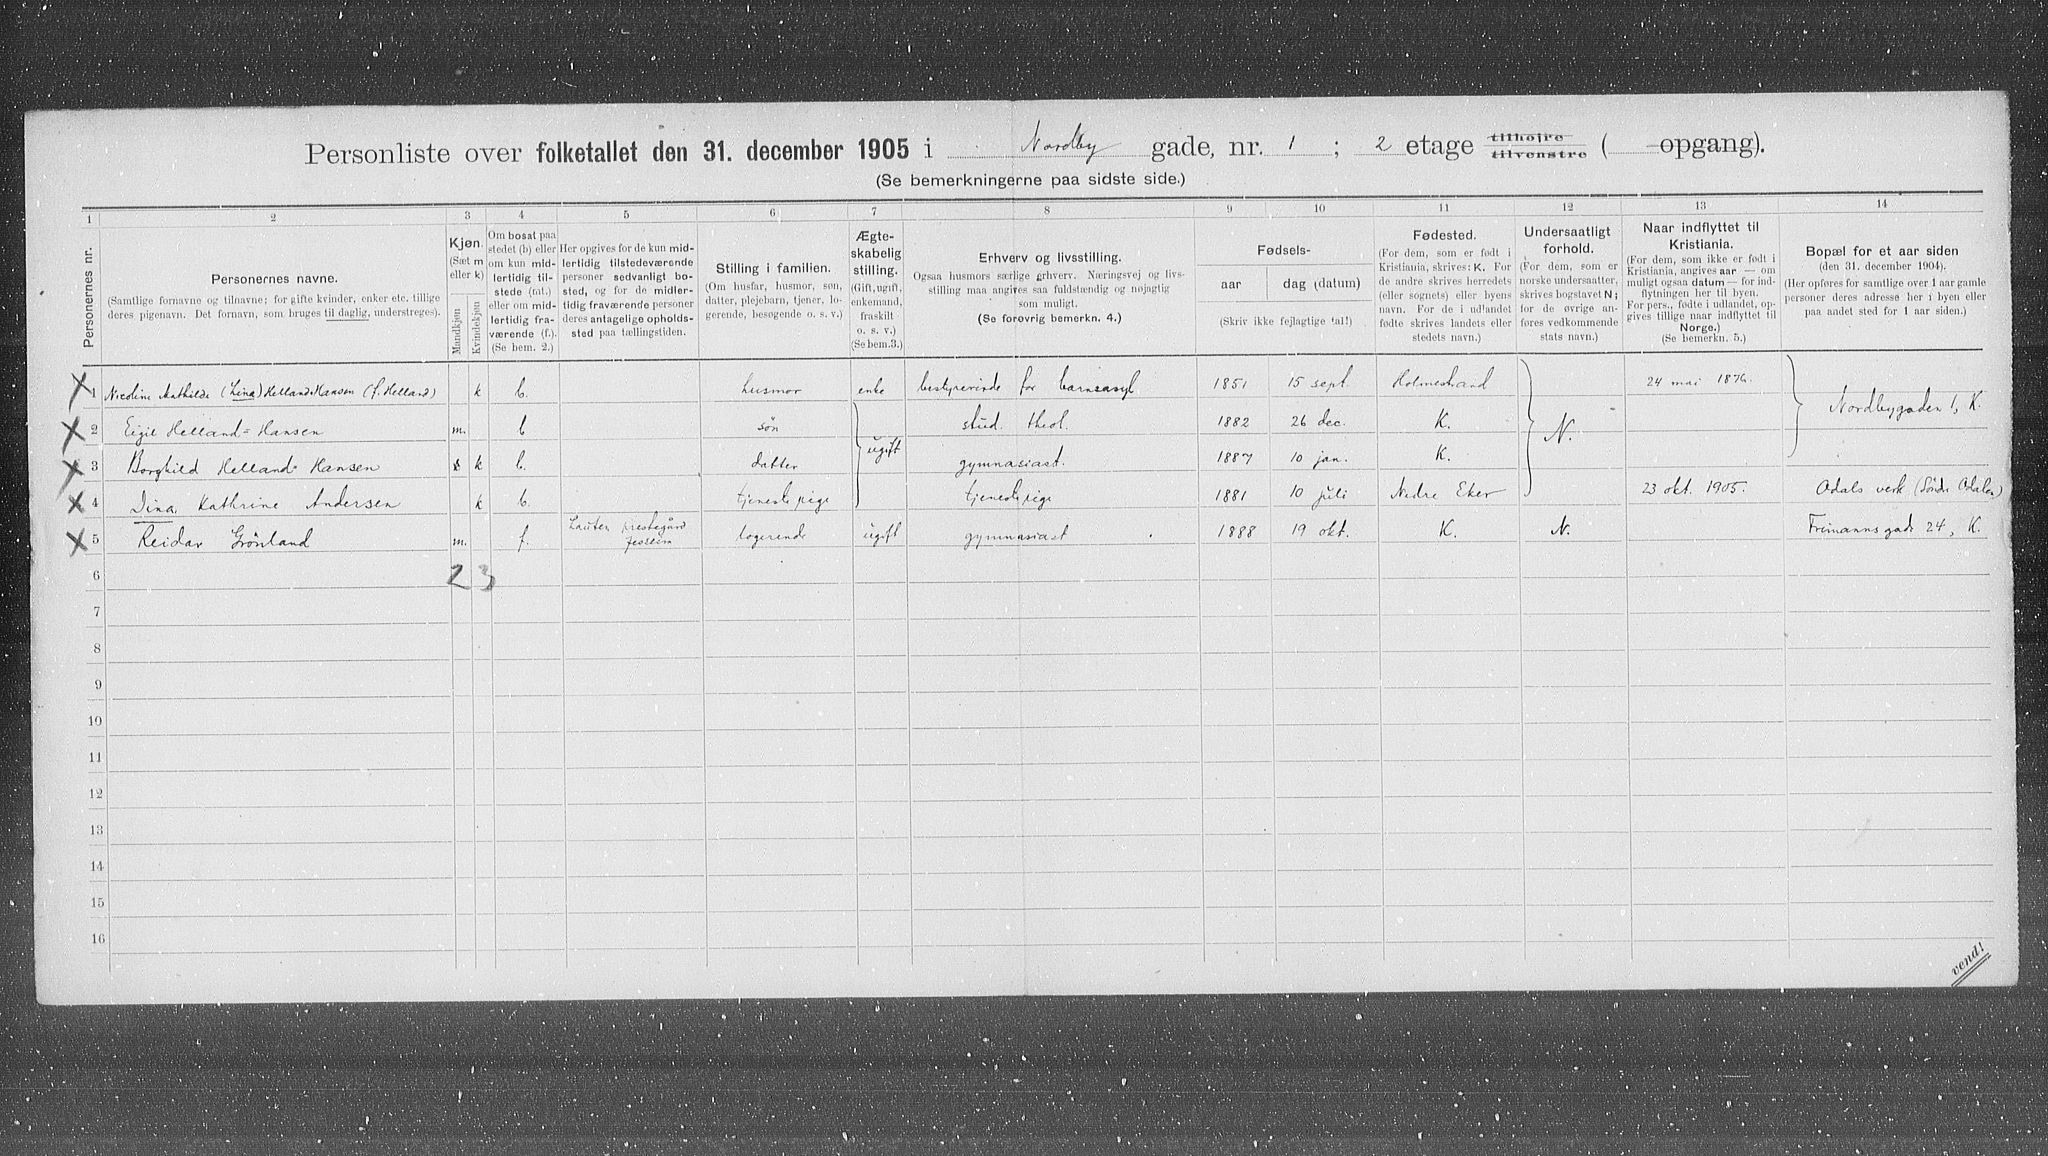 Personliste over folketallet den 31. december 1905 i Nordby gade, nr. 1 ; 2 etage tilhøjre tilvenstre ( opgang).
(Se bemerkningerne paa sidste side.)
1 2 3 4 5 6 7 8 9 10 11 12 13 14
Personernes nr.
Personernes navne.
(Samtlige fornavne og tilnavne; for gifte kvinder, enker etc. tillige
deres pigenavn. Det fornavn, som bruges til daglig, understreges).
Kjøn.
(Sæt m
eller k)
Mandkjøn
Kvindekjøn
Om bosat paa
stedet (b) eller
om kun mid-
lertidig til-
stede (mt.)
eller om mid-
lertidig fra-
værende (f.).
(Se bem. 2.)
Her opgives for de kun mid-
lertidig tilstedeværende
personer sedvanligt bo-
sted, og for de midler-
tidig fraværende personer
deres antagelige opholds-
sted paa tællingstiden.
Stilling i familien.
(Om husfar, husmor, søn,
datter, plejebarn, tjener, lo-
gerende, besøgende o. s. v.)
Ægte-
skabelig
stilling.
(Gift, ugift,
enkemand,
fraskilt
o. s. v.)
(Se bem.3.)
Erhverv og livsstilling.
Ogsaa husmors særlige erhverv. Næringsvej og livs-
stilling maa angives saa fuldstændig og nøjagtig
som muligt.
(Se forøvrig bemerkn. 4.)
Fødsels-
aar
dag (datum)
(Skriv ikke fejlagtige tal!)
Fødested.
(For dem, som er født i
Kristiania, skrives: K. For
de andre skrives herredets
(eller sognets) eller byens
navn. For de i udlandet
fødte skrives landets eller
stedets navn.)
Undersaatligt
forhold.
(For dem, som er
norske undersaatter,
skrives bogstavet N;
for de øvrige an-
føres vedkommende
stats navn.)
Naar indflyttet til
Kristiania.
(For dem, som ikke er født i
Kristiania, angives aar — om
muligt ogsaa datum — for ind-
flytningen her til byen.
For pers., fødte i udlandet, op-
gives tillige naar indflyttet til
Norge.)
(Se bemerkn. 5.)
Bopæl for et aar siden
(den 31. december 1904).
(Her opføres for samtlige over 1 aar gamle
personer deres adresse her i byen eller
paa andet sted for 1 aar siden.)
1 Nicoline Mathilde (Lina) Helland-Hansen (f. Helland) k b. husmor enke bestyrerinde for barneasyl 1851 15 sept. Holmestrand 24 mai 1876
2 Eigil Helland-Hansen m. b søn stud. theol. 1882 26 dec. K. N. Nordbygaden 1, K.
3 Borghild Helland-Hansen k b. datter ugift gymnasiast. 1887 10 jan. K.
4 Dina Kathrine Andersen k b. tjenestepige tjenestepige 1881 10 juli Nedre Eker 23 okt. 1905. Odals verk (Søndre Odalen)
5 Reidar Grönland m. f. prestegård Jessheim logerende ugift gymnasiast 1888 19 okt. K. N. Frimannsgade 24, K.
6 2 3
7
8
9
10
11
12
13
14
15
16
vend!